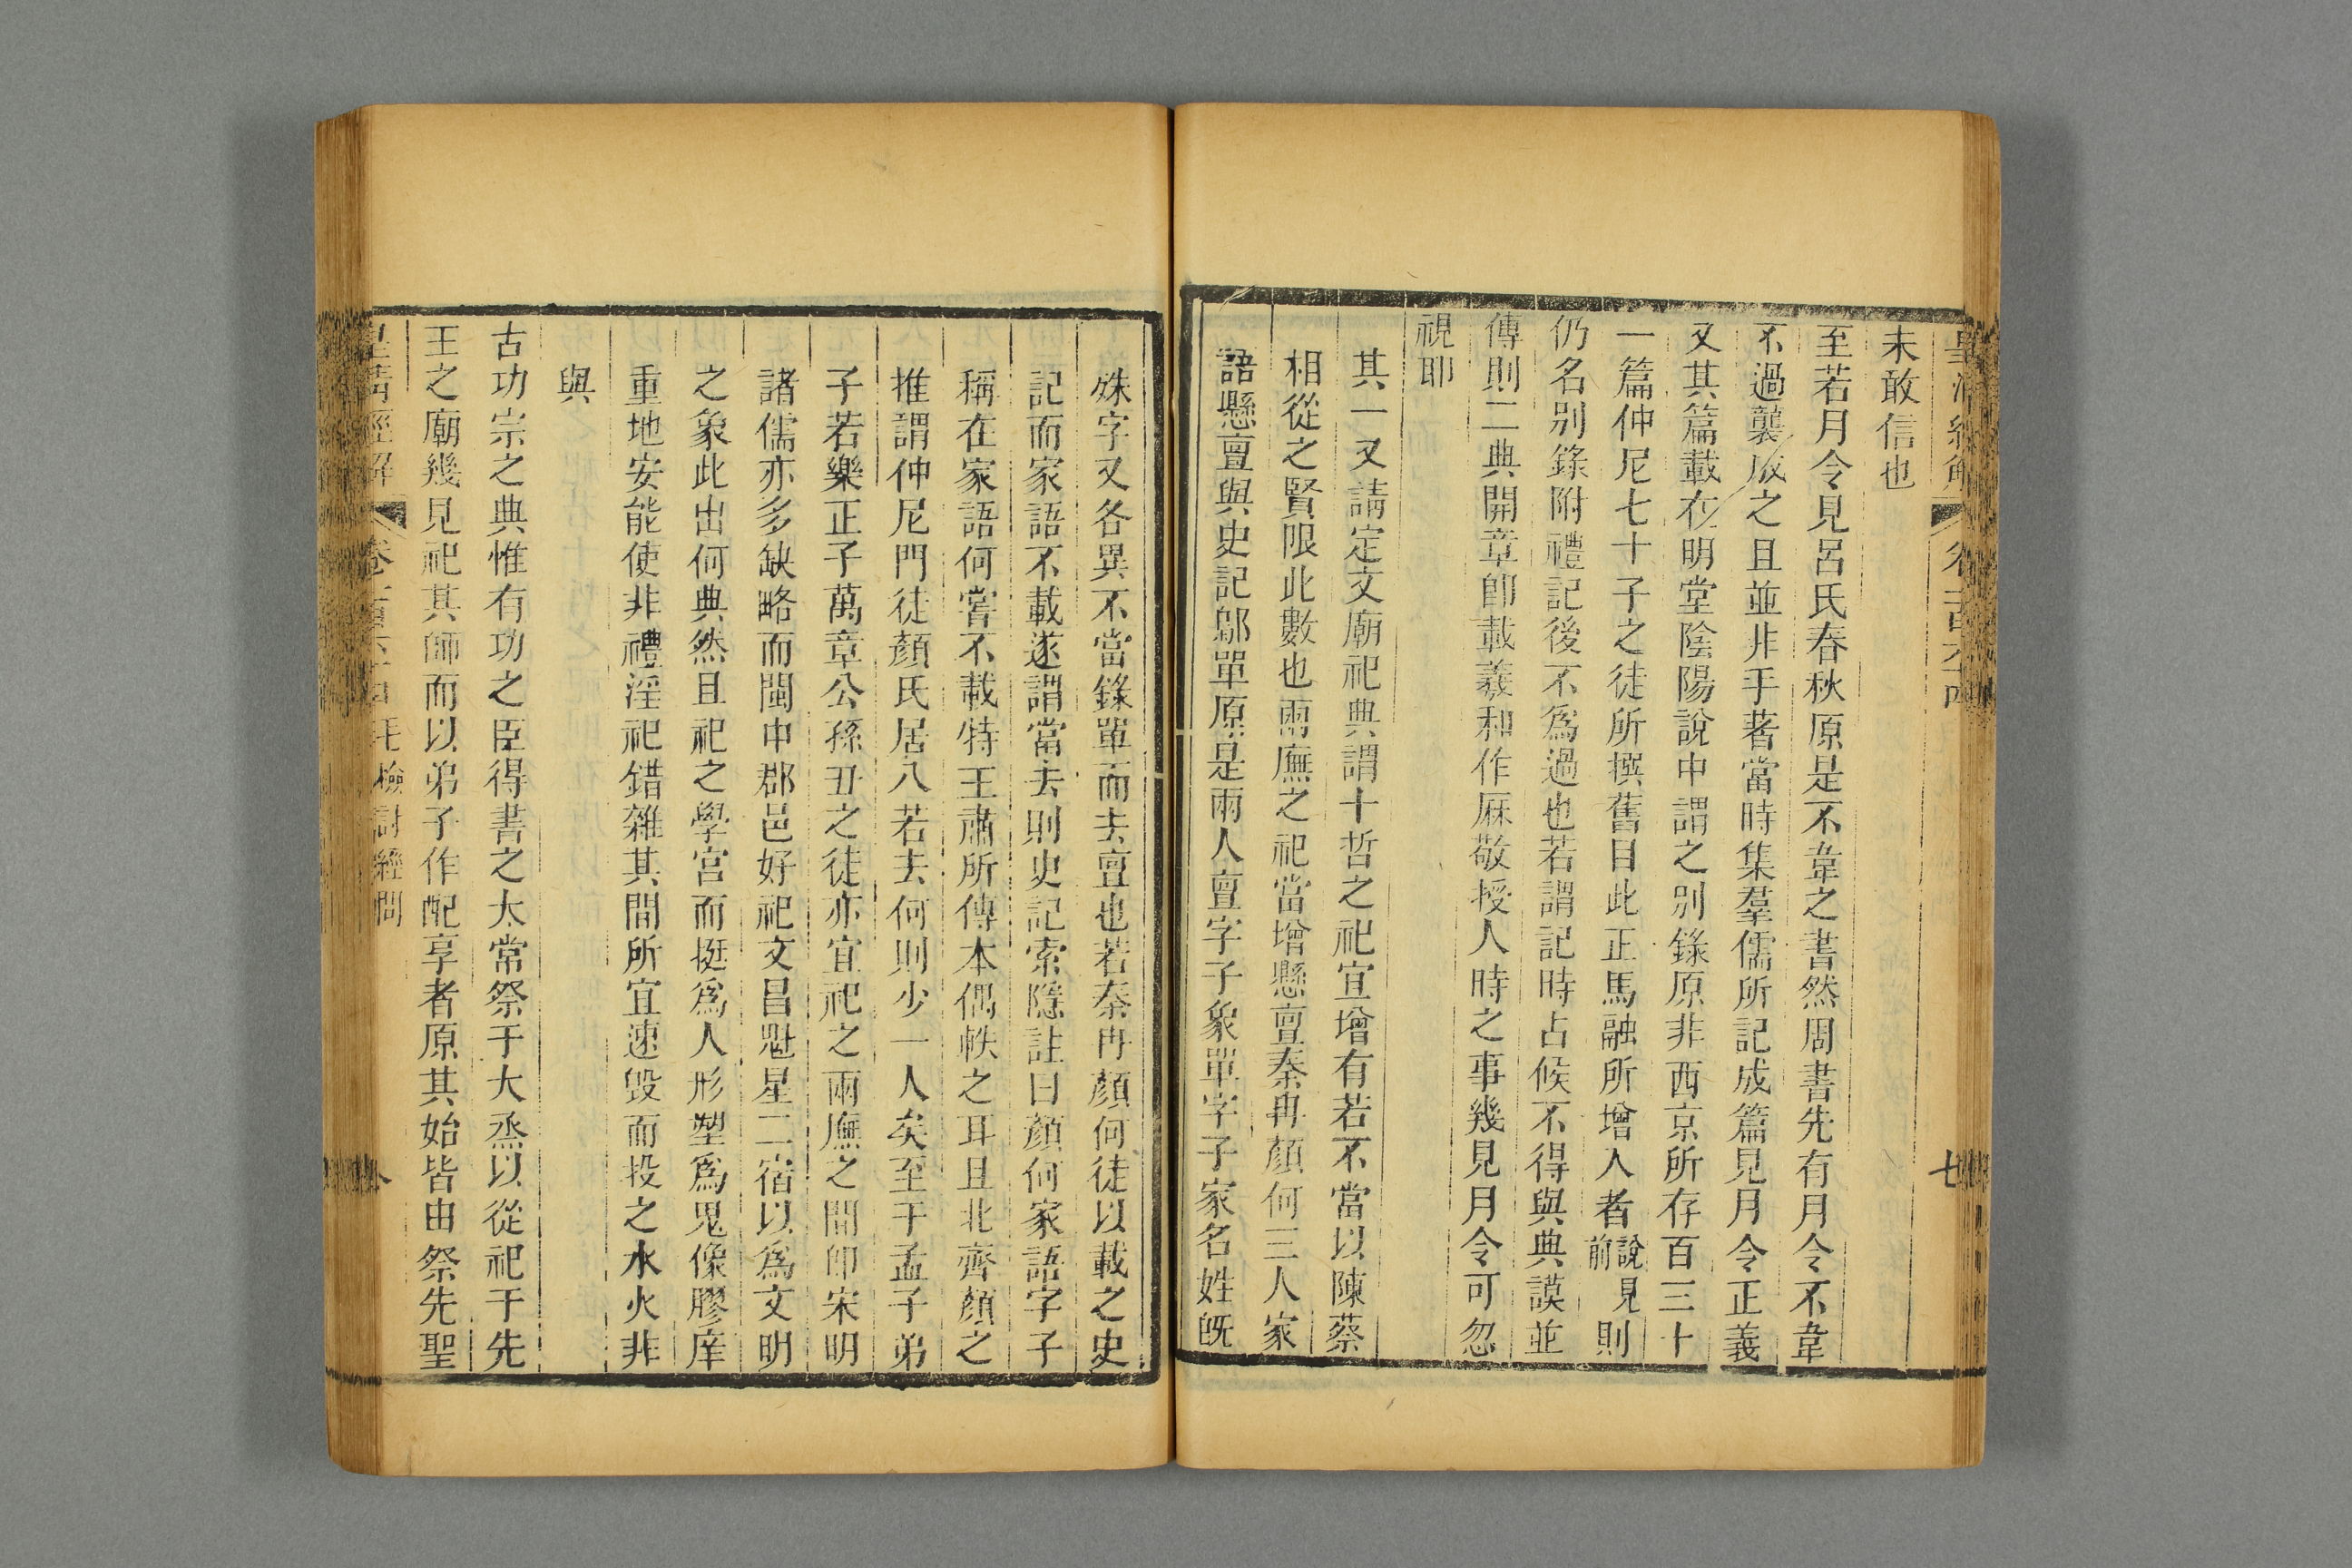 未敢信也
至若月令見呂氏春秋原是不韋之書然周書先有月令不韋
不過襲成之且並非手著當時集羣儒所記成篇見月令正義
又其篇載在明堂陰陽說中謂之別錄原非西京所存百三十
一篇仲尼七十子之徒所撰舊目此正馬融所增入者說見前則
仍名別錄附禮記後不爲過也若謂記時占候不得與典謨並
傳則二典開章卽載羲和作厤敬授人時之事幾見月令可忽
視耶
其一又請定文廟祀典謂十哲之祀宜增有若不當以陳蔡
相從之賢限此數也兩廡之祀當增懸亶秦冉顏何三人家
語懸亶與史記鄔單原是兩人亶字子象單字子家名姓旣
殊字又各異不當錄單而去亶也若秦冉顏何徒以載之史
記而家語不載遂謂當去則史記索隱註曰顏何家語字子
稱在家語何嘗不載特王肅所傳本偶軼之耳且北齊顏之
推謂仲尼門徒顏氏居八若去何則少一人矣至于孟子弟
子若樂正子萬章公孫丑之徒亦宜祀之兩廡之間卽宋明
諸儒亦多缺略而閩中郡邑好祀文昌魁星二宿以爲文明
之象此出何典然且祀之學宮而挺爲人形塑爲鬼像膠庠
重地安能使非禮淫祀錯雜其間所宜速毀而投之水火非
與
古功宗之典惟有功之臣得書之太常祭于大烝以從祀于先
王之廟幾見祀其師而以弟子作配享者原其始皆由祭先聖